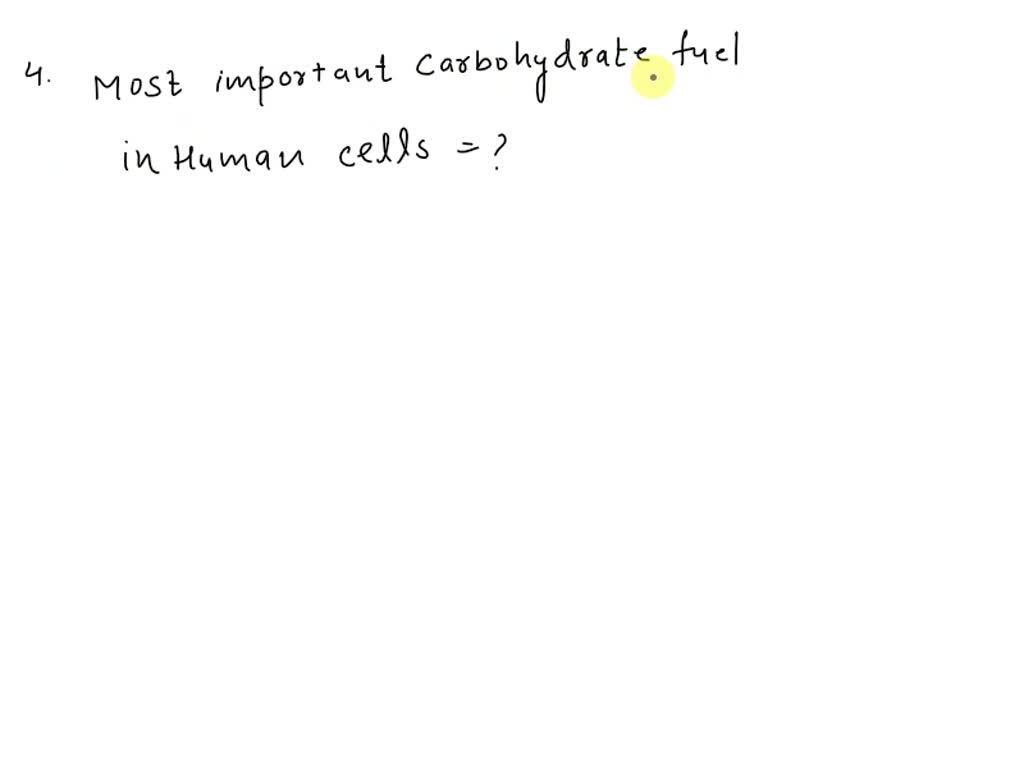 4. Most important carbohydrate fuel
in Human cells = ?